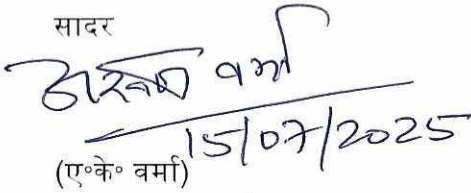 सादर
वर्मा
15/07/2025
(ए०के० वर्मा)